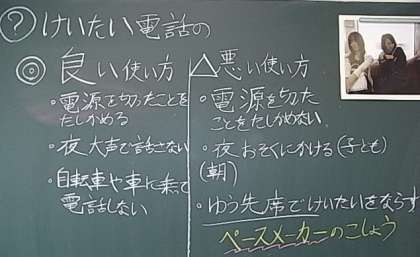 ? けいたい電話の
◎ 良い使い方
・電源を切ったことを
たしかめる
・夜大声で話さない
・自転車や車に乗って
電話しない
△ 悪い使い方
・電源を切った
ことをたしかめない
・夜おそくにかける(子ども)
(朝)
・ゆう先席でけいたいをならす
ペースメーカーのこしょう